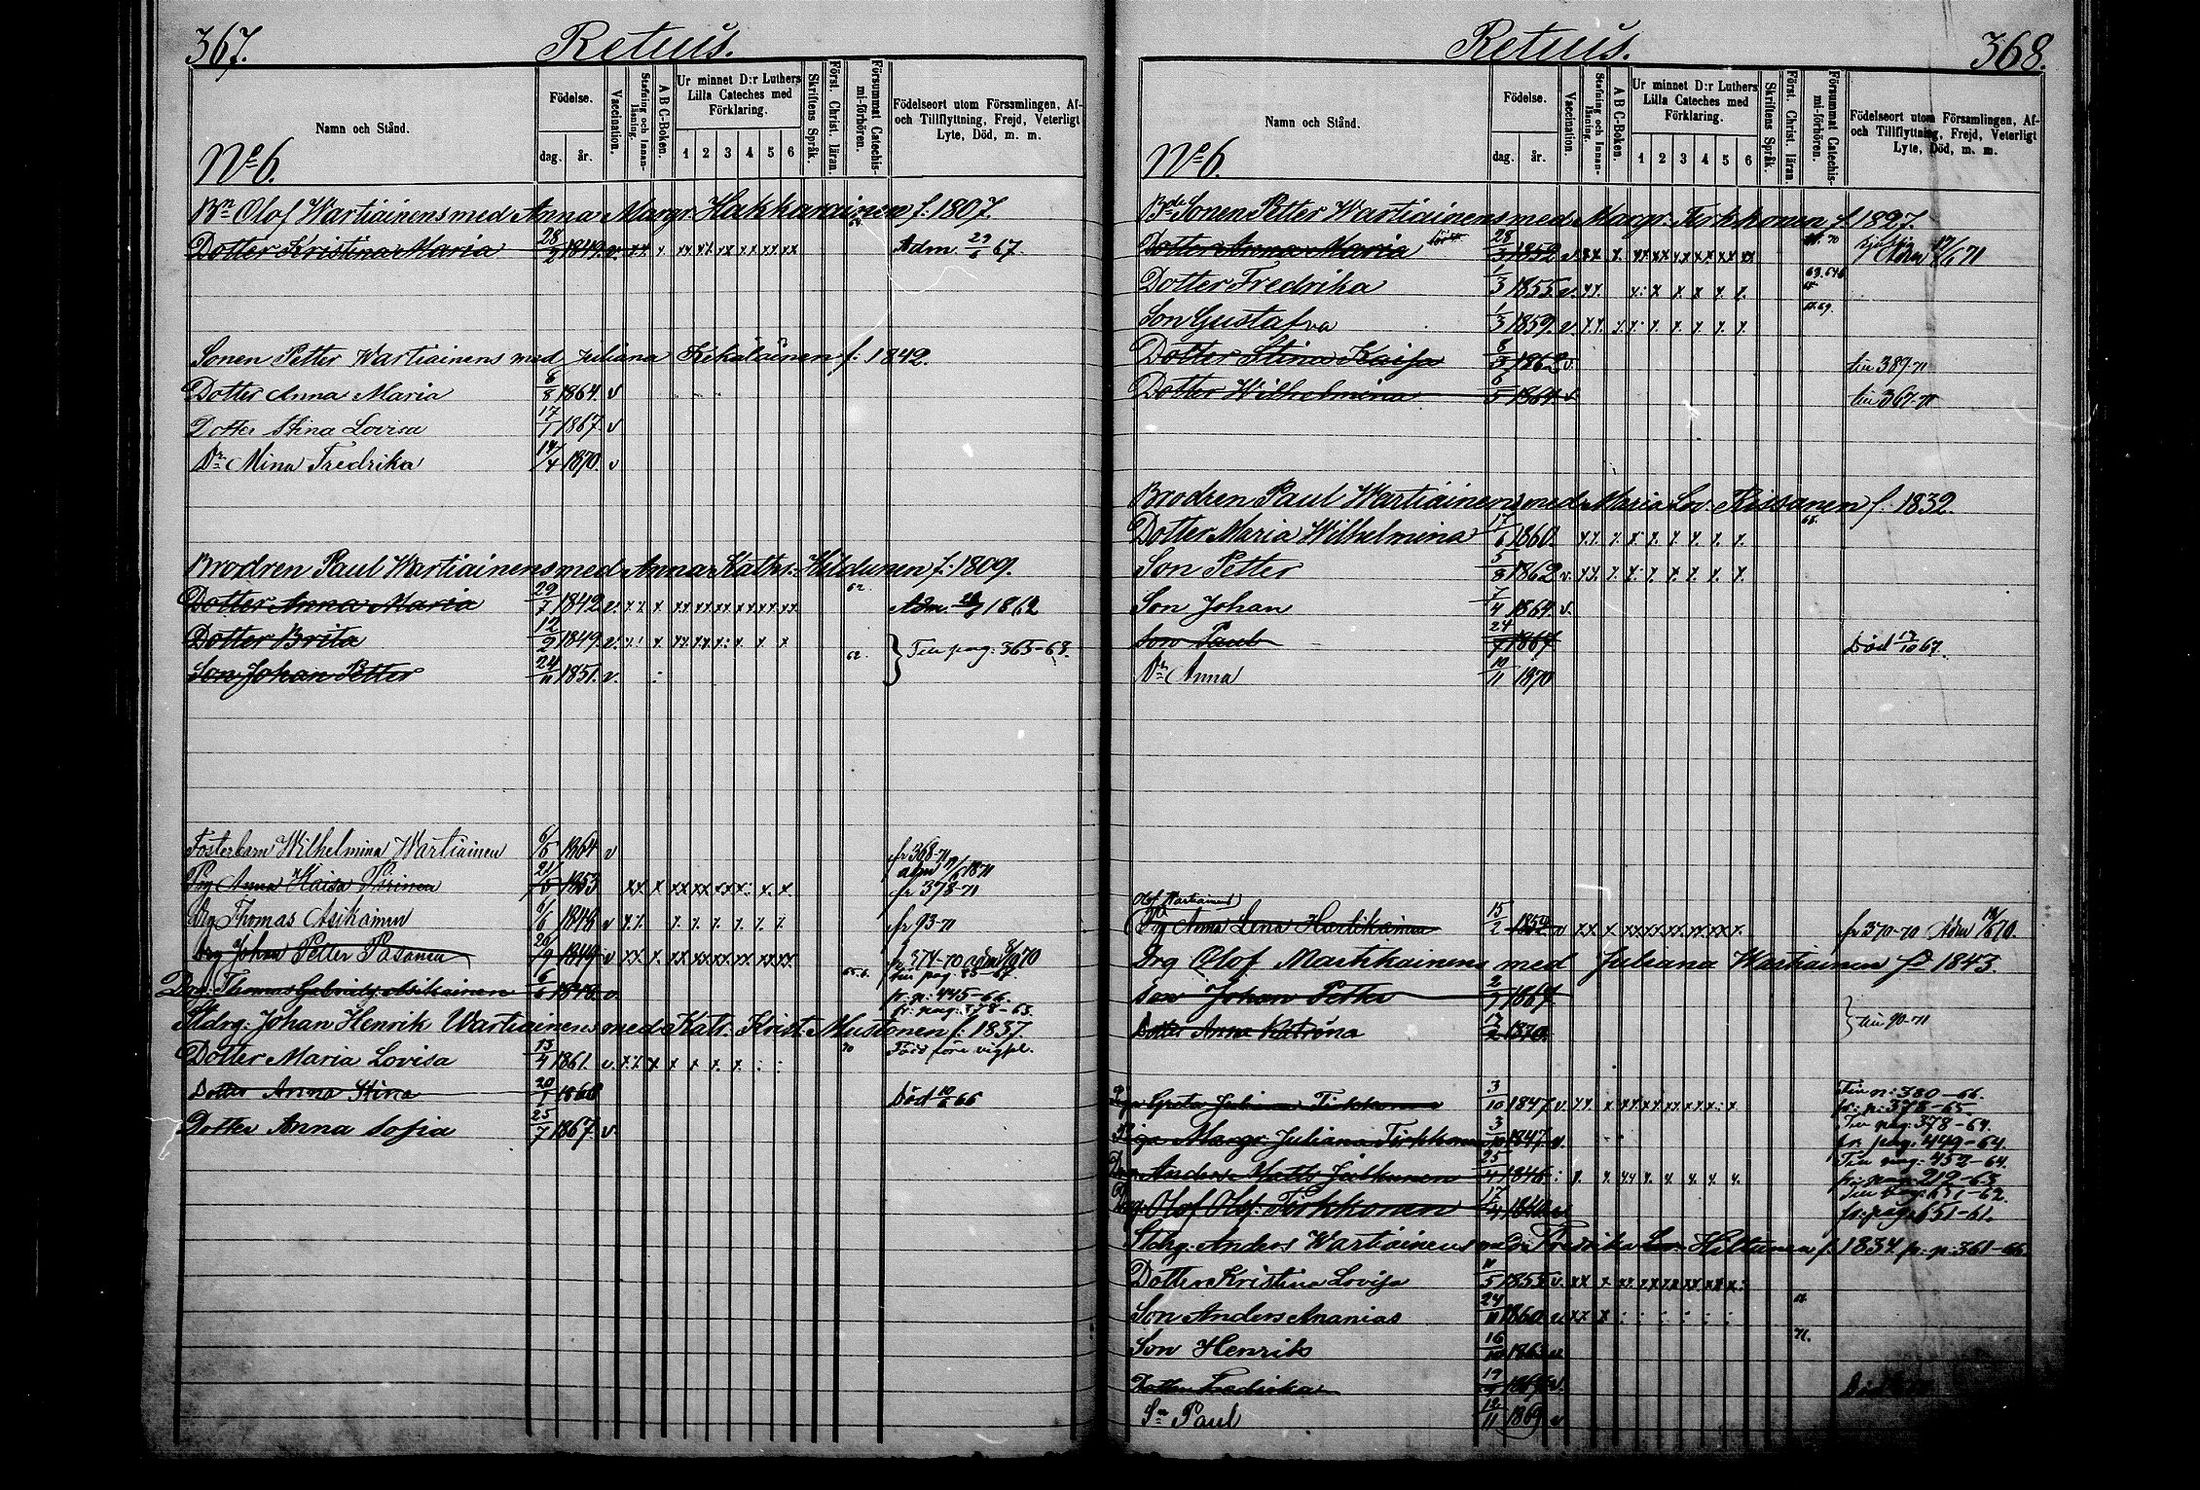 367.
Retuis.
Namn och Stånd.
Födelse.
dag.
år.
Vaccination.
Stafning och Innanläsning.
A B C-Boken.
Ur minnet D:r Luthers Lilla Cateches med Förklaring.
1 2 3 4 5 6
Skriftens Språk.
Först. Christ. läran.
Försummat Catechismi-förhören.
Födelseort utom Församlingen, Af- och Tillflyttning, Frejd, Veterligt Lyte, Död, m. m.
No 6.
Bn Olof Wartiainens med Anna Margr. Hakkarainen f. 1807.
Dotter Kristina Maria 28/2 1849. v. Adm. 67.
Sonen Petter Wartiainens med Juliana Kekäläinen f. 1842.
Dotter Anna Maria 8/8 1864 v
Dotter Stina Lovisa 17/1 1867 v
Dr Mina Fredrika 14/4 1870 v
Brodren Paul Wartiainens med Anna Kathr. Hildunen f. 1809.
Dotter Anna Maria 29/7 1842 v. 62. Adm. 1862
Dotter Brita 12/2 1849 v. Till pag: 365-68.
Son Johan Petter 24/11 1851. v. 62.
Fosterbarn Wilhelmina Wartiainen 6/5 1864 v fr 368-71
Pig Anna Kaisa Piirinen 21/5 1853 fr 378-71
Drg Thomas Asikainen 6/6 1848 v fr 93-71
Drg Johan Petter Pasanen 26/9 1849 v fr 374-70
Drg. Thomas Gabrielss. Asikainen 6/6 1848 v. fr. p: 445-66.
Stdrg. Johan Henrik Wartiainens med Katr. Krist. Mustonen f. 1837. fr. pag: 378-63.
Dotter Maria Lovisa 13/4 1861. v. 70 Född före vigsel.
Dotter Anna Stina 20/1 1866 Död 66
Dotter Anna Sofia 25/7 1867 v.
368.
Retuis.
Namn och Stånd.
Födelse.
dag.
år.
Vaccination.
Stafning och Innanläsning.
A B C-Boken.
Ur minnet D:r Luthers Lilla Cateches med Förklaring.
1 2 3 4 5 6
Skriftens Språk.
Först. Christ. läran.
Försummat Catechismi-förhören.
Födelseort utom Församlingen, Af- och Tillflyttning, Frejd, Veterligt Lyte, Död, m. m.
No 6.
Bde Sonen Petter Wartiainens med Margr. Tirkkonen f. 1827.
Dotter Anna Maria 28/3 1852 v.
Dotter Fredrika 1/3 1855 v.
Son Gustafva 1/3 1859. v.
Dotter Stina Kaisa 1862 v. till 389-71
Dotter Wilhelmina 6/5 1864 v. till 367-71
Brodren Paul Wartiainens med Maria Lov. Rissanen f. 1832.
Dotter Maria Wilhelmina 17/6 1860
Son Petter 5/8 1862 v.
Son Johan 7/4 1864 v.
Son Paul 24/7 1867 Död 67.
Dr Anna 10/11 1870
Olof Wartiainens
Pig Anna Lena Hartikainen 15/2 1852 v fr 370-70
Drg Olof Martikainens med Juliana Wartiainen f. 1843.
Son Johan Petter 1867
Dotter Anna Katrina 1870 till 90-71
Piga Greta Juliana Tirkkonen 3/10 1847 v. Till p: 380-66. fr. p: 378-65.
Piga Margr. Juliana Tirkkonen 3/10 1847 v. Till pag: 378-64. fr. pag: 449-64.
Drg Anders Matts 25/4 1846 Till pag: 452-64. fr. pag: 212-63.
Drg. Olof Olofs: Tirkkonen 17/4 1840 Till pag: 651-62. fr. pag: 651-61.
Stdrg. Anders Wartiainens med Fredrika Lov. Hiltunen f. 1834 fr. p: 361-66
Dotter Kristina Lovisa 11/5 1855 v.
Son Anders Ananias 24/11 1860 v.
Son Henrik 16/10 1863
Dotter Fredrika v. Död
Sn Paul 12/11 1869 v